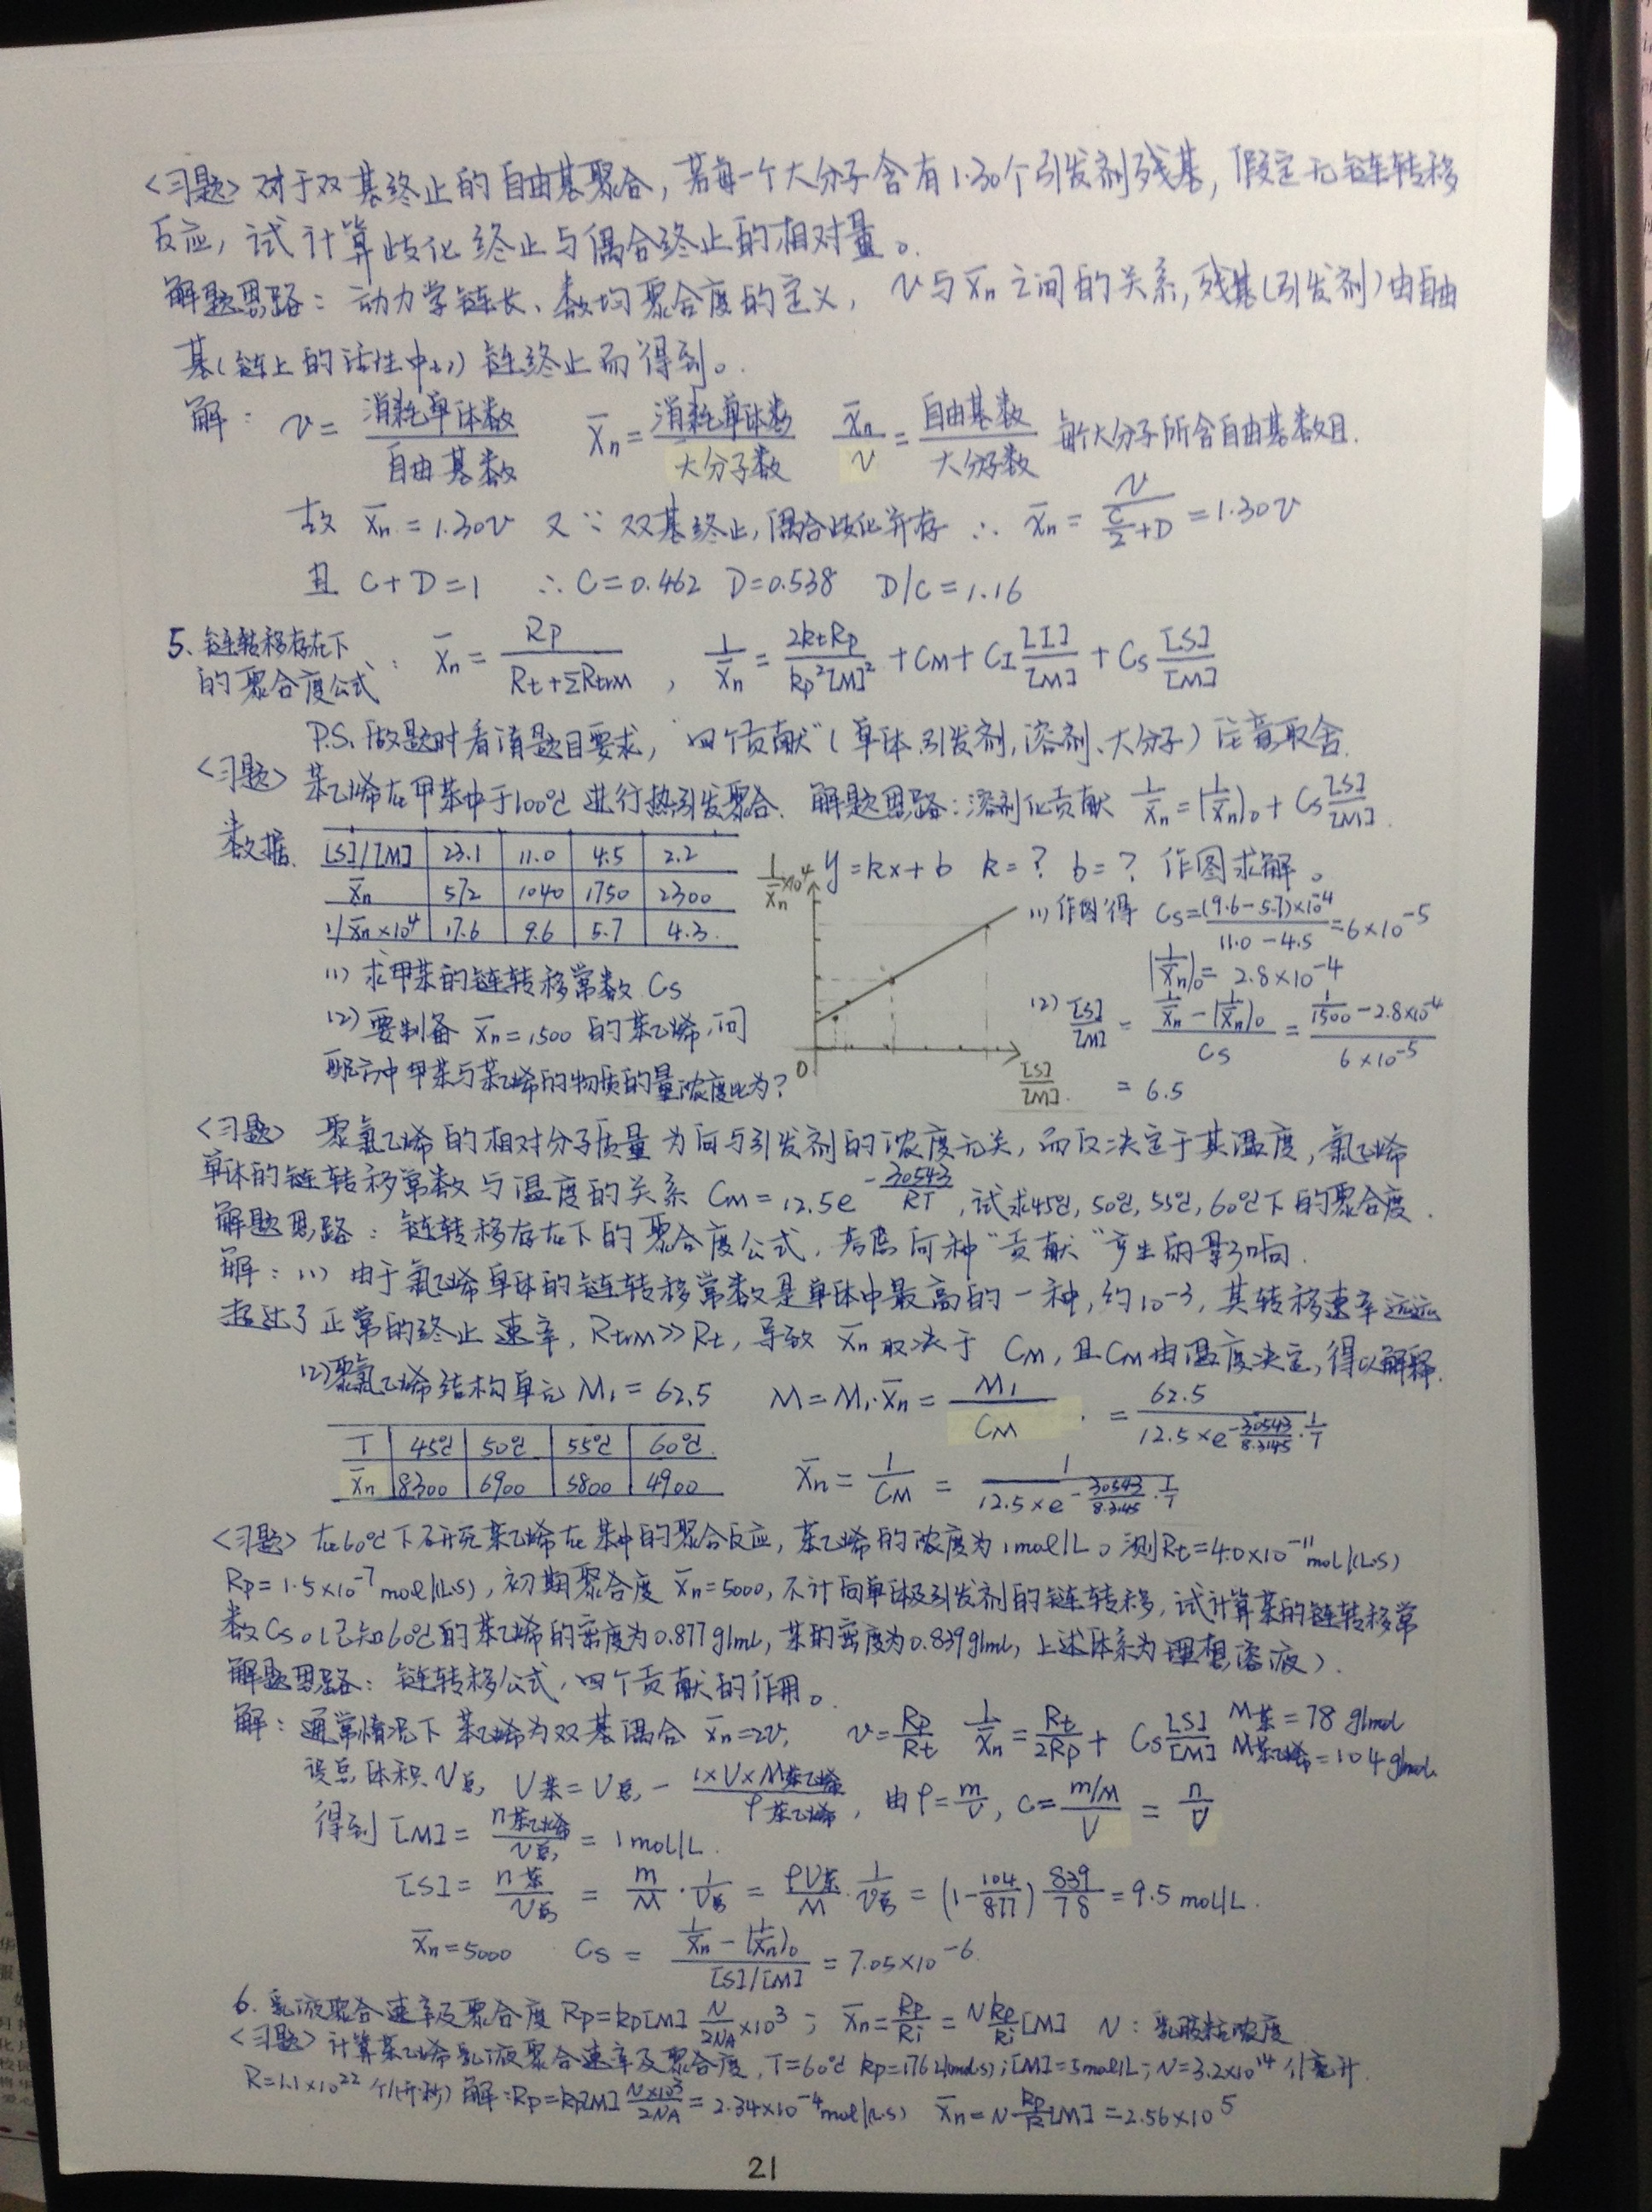 <习题> 对于双基终止的自由基聚合，若每一个大分子含有1.30个引发剂残基，假定无链转移
反应，试计算歧化终止与偶合终止的相对量。
解题思路：动力学链长、数均聚合度的定义，ν与X̄n之间的关系，残基(引发剂)由自由
基(链上的活性中心)链终止而得到。
解：ν = 消耗单体数/自由基数  X̄n = 消耗单体数/大分子数  X̄n/ν = 自由基数/大分子数 每个大分子所含自由基数目.
故 X̄n = 1.30ν 又∵双基终止，偶合歧化并存 ∴ X̄n = ν/(C/2+D) = 1.30ν
且 C+D=1 ∴C=0.462 D=0.538 D/C=1.16
5. 链转移存在下的聚合度公式：X̄n = Rp/(Rt+ΣRtrM)， 1/X̄n = 2ktRp/(kp²[M]²) + CM + CI [I]/[M] + CS [S]/[M]
P.S. 做题时看清题目要求，"四个贡献"(单体、引发剂，溶剂、大分子)注意取舍.
<习题> 苯乙烯在甲苯中于100℃进行热引发聚合. 解题思路：溶剂化贡献 1/X̄n = (1/X̄n)0 + CS [S]/[M].
数据. [S]/[M] 23.1 11.0 4.5 2.2
X̄n 572 1040 1750 2300
1/X̄n×10⁴ 17.6 9.6 5.7 4.3
1/X̄n×10⁴ y=kx+b k=? b=? 作图求解。
(1) 作图得 CS = (9.6-5.7)×10⁻⁴/(11.0-4.5) = 6×10⁻⁵
(1/X̄n)0 = 2.8×10⁻⁴
(1) 求甲苯的链转移常数 CS
(2) 要制备 X̄n=1500 的苯乙烯，问
配方中甲苯与苯乙烯的物质的量浓度比为?
(2) [S]/[M] = (1/X̄n - (1/X̄n)0)/CS = (1/1500 - 2.8×10⁻⁴)/(6×10⁻⁵)
0 [S]/[M]. = 6.5
<习题> 聚氯乙烯的相对分子质量为何与引发剂的浓度无关，而仅决定于其温度，氯乙烯
单体的链转移常数与温度的关系 CM = 12.5e^(-30543/RT)，试求45℃, 50℃, 55℃, 60℃下的聚合度.
解题思路：链转移存在下的聚合度公式，考虑何种"贡献"产生的影响.
解：(1) 由于氯乙烯单体的链转移常数是单体中最高的一种，约10⁻³，其转移速率远远
超过了正常的终止速率，RtrM>>Rt，导致 X̄n 取决于 CM，且CM由温度决定，得以解释.
(2)聚氯乙烯结构单元 M1=62.5 M=M1·X̄n = M1/CM = 62.5/(12.5×e^(-30543/8.3145·1/T))
T 45℃ 50℃ 55℃ 60℃
X̄n 8300 6900 5800 4900
X̄n = 1/CM = 1/(12.5×e^(-30543/8.3145·1/T))
<习题> 在60℃下研究苯乙烯在苯中的聚合反应，苯乙烯的浓度为1mol/L。测Rt=4.0×10⁻¹¹mol/(L·S)
Rp=1.5×10⁻⁷mol/(L·S)，初期聚合度 X̄n=5000，不计向单体及引发剂的链转移，试计算苯的链转移常
数CS。(已知60℃的苯乙烯的密度为0.877g/mL，苯的密度为0.839g/mL，上述体系为理想溶液).
解题思路：链转移公式，四个贡献的作用。
解：通常情况下苯乙烯为双基偶合 X̄n=2ν， ν=Rp/Rt 1/X̄n = Rt/2Rp + CS [S]/[M] M苯=78 g/mol
M苯乙烯=104g/mol.
设总体积V总，V苯=V总 - 1×V×M苯乙烯/ρ苯乙烯，由ρ=m/V，C=(m/M)/V = n/V
得到 [M] = n苯乙烯/V总 = 1mol/L.
[S] = n苯/V总 = m/M · 1/V总 = ρV苯/M · 1/V总 = (1-104/877) 839/78 = 9.5 mol/L.
X̄n=5000 CS = (1/X̄n - (1/X̄n)0)/([S]/[M]) = 7.05×10⁻⁶.
6. 乳液聚合速率及聚合度 Rp=kp[M] N/2NA ×10³； X̄n = Rp/Ri = N kp/Ri [M] N：乳胶粒浓度
<习题> 计算苯乙烯乳液聚合速率及聚合度，T=60℃ kp=176L/(mol·s)；[M]=5mol/L；N=3.2×10¹⁴个/毫升.
R=1.1×10²² 个/(升·秒) 解：Rp=kp[M] N×10³/2NA = 2.34×10⁻⁴mol/(L·S) X̄n=N kp/R [M] = 2.56×10⁵
21